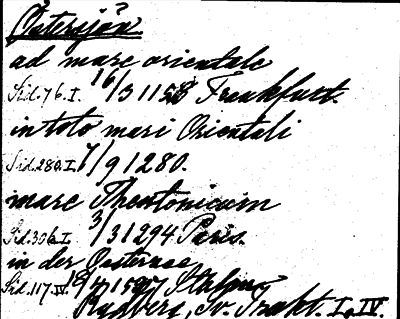 Östersjön
ad mare orientale
Sid. 76. I. 16/3 1158 Frankfurt.
in toto mari Orientali
Sid. 280. I 7/9 1280.
mare Theotonicum
Sid. 306. I 3/3 1294 Paris.
in der Ostersee
Sid. 117. IV.
Rydberg, Sv. Trakt. I o. IV.